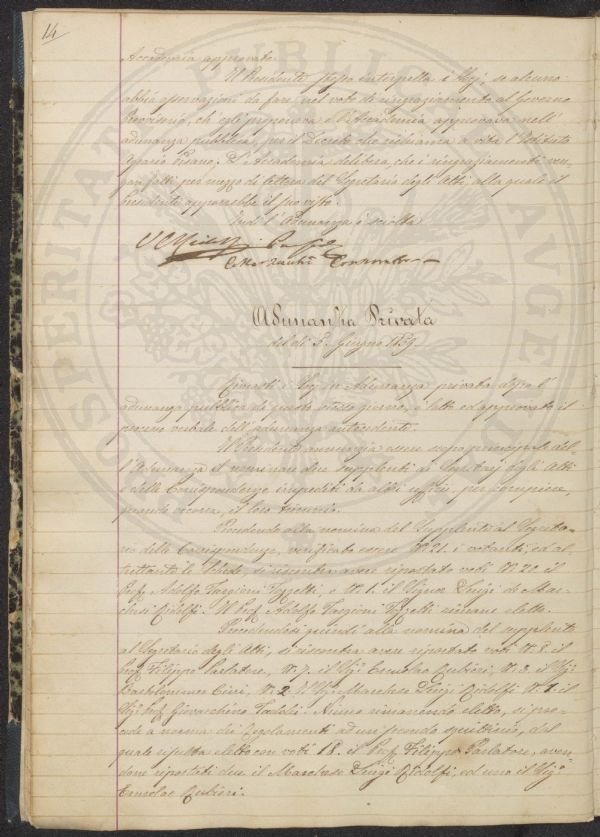 14
Accademia approvato.
Il Presidente stesso interpella i Sigj. se alcuno
abbia osservazioni da fare, nel voto di ringraziamento al Governo
Provvisorio, ch'egli proponeva e l'Accademia approvava nell'
adunanza pubblica, per il Decreto che richiama a vita l'Istituto
Agrario Pisano. L'Accademia delibera che i ringraziamenti ven-
gan fatti per mezzo di lettera del Segretario degli Atti, alla quale il
Presidente apporrebbe il suo visto.
Indi l'Adunanza è sciolta
Adunanza Privata
del dì 5. Giugno 1859
Riuniti i Sigj. in Adunanza privata dopo l'
adunanza pubblica di questo stesso giorno, è letto ed approvato il
processo verbale dell'adunanza antecedente.
Il Presidente annunzia essere scopo principale del-
l'Adunanza il nominare due supplenti ai Segretarj degli Atti
e delle Corrispondenze impediti da altri uffici, per compiere,
quando occorra, il loro
Procedendo alla nomina del Supplente al Segreta-
rio delle Corrispondenze, verificato essere N.° 21. i votanti, ed al-
trettante le schede, si riscontra avere riportato voti N.° 20 il
Prof. Adolfo Targioni Tozzetti, e N.° 1. il Signor Luigi de Mar-
chesi Ridolfi. Il Prof. Adolfo Targioni Tozzetti rimane eletto.
Procedendosi quindi alla nomina del supplente
al Segretario degli Atti, si riscontra avere riportato voti N.° 8. il
Prof. Filippo Parlatore, N.° 7. il Sig.r Ermolao Rubieri, N.° 3. il Sig.r
Bartolommeo Cini, N.° 2 il Sig. Marchese Luigi Ridolfi N.° 1. il
Sig. Prof. Giovacchino Taddei. Niuno rimanendo eletto, si pro-
cede a norma dei Regolamenti ad un secondo squittinio, dal
quale risulta eletto con voti 18. il Prof. Filippo Parlatore, aven-
done riportati due il Marchese Luigi Ridolfi, ed uno il Sig.r
Ermolao Rubieri.